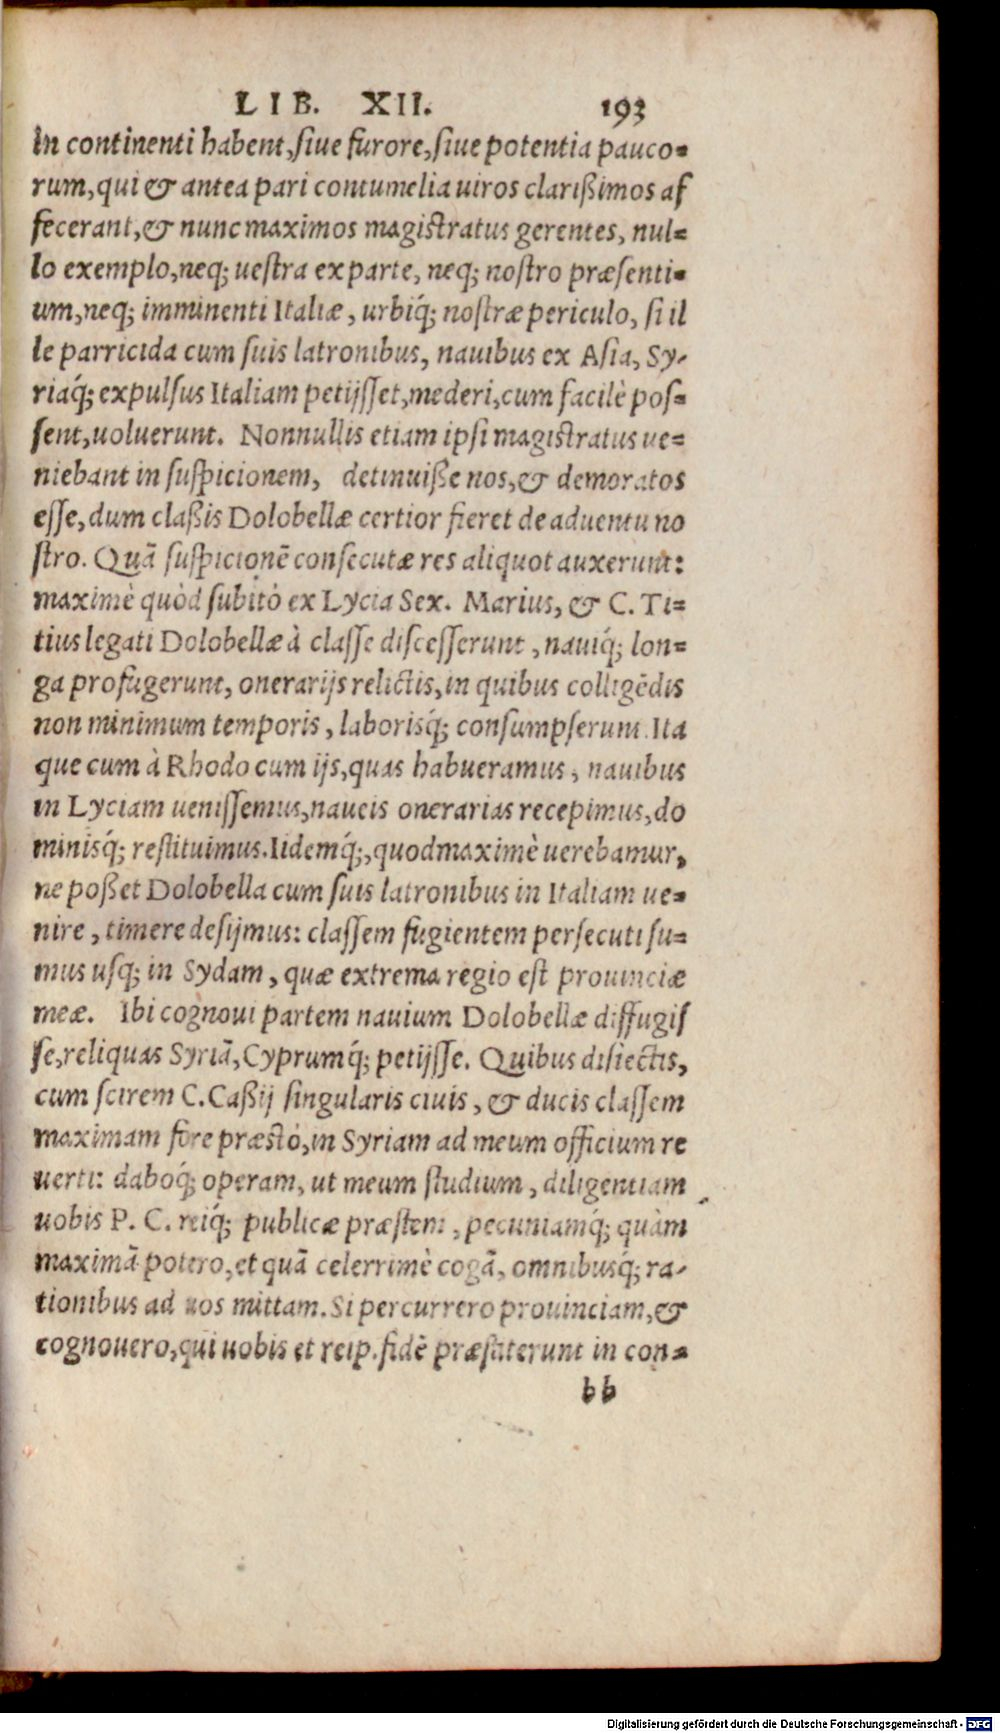 LIB. XII. 193
in continenti habent,siue furore,siue potentia pauco-
rum,qui & antea pari contumelia uiros clarißimos af
fecerant,& nunc maximos magistratus gerentes, nul-
lo exemplo,neq; uestra ex parte, neq; nostro præsenti-
um,neq; imminenti Italiæ, urbiq́; nostræ periculo, si il
le parricida cum suis latronibus, nauibus ex Asia, Sy-
riaq́; expulsus Italiam petijsset,mederi,cum facilè pos-
sent,uoluerunt. Nonnullis etiam ipsi magistratus ue-
niebant in suspicionem, detinuiße nos,& demoratos
esse,dum claßis Dolobellæ certior fieret de aduentu no
stro. Quā suspicionē consecutæ res aliquot auxerunt:
maximè quòd subitò ex Lycia Sex. Marius, & C. Ti-
tius legati Dolobellæ à classe discesserunt, nauiq́; lon-
ga profugerunt, onerarijs relictis,in quibus colligēdis
non minimum temporis, laborisq́; consumpserunt. Ita
que cum à Rhodo cum ijs,quas habueramus, nauibus
in Lyciam uenissemus,naueis onerarias recepimus,do
minisq́; restituimus.Iidemq́;,quodmaximè uerebamur,
ne poßet Dolobella cum suis latronibus in Italiam ue-
nire, timere desijmus: classem fugientem persecuti su-
mus usq; in Sydam, quæ extrema regio est prouinciæ
meæ. Ibi cognoui partem nauium Dolobellæ diffugis
se,reliquas Syriā,Cyprumq́; petijsse. Quibus disiectis,
cum scirem C.Caßij singularis ciuis, & ducis classem
maximam fore præstò,in Syriam ad meum officium re
uerti: daboq́; operam, ut meum studium, diligentiam
uobis P. C. reiq́; publicæ præstem, pecuniamq́; quàm
maximā potero,et quā celerrimè cogā, omnibusq́; ra-
tionibus ad uos mittam. Si percurrero prouinciam,&
cognouero,qui uobis et reip.fidē præstiterunt in con-
bb
Digitalisierung gefördert durch die Deutsche Forschungsgemeinschaft - DFG